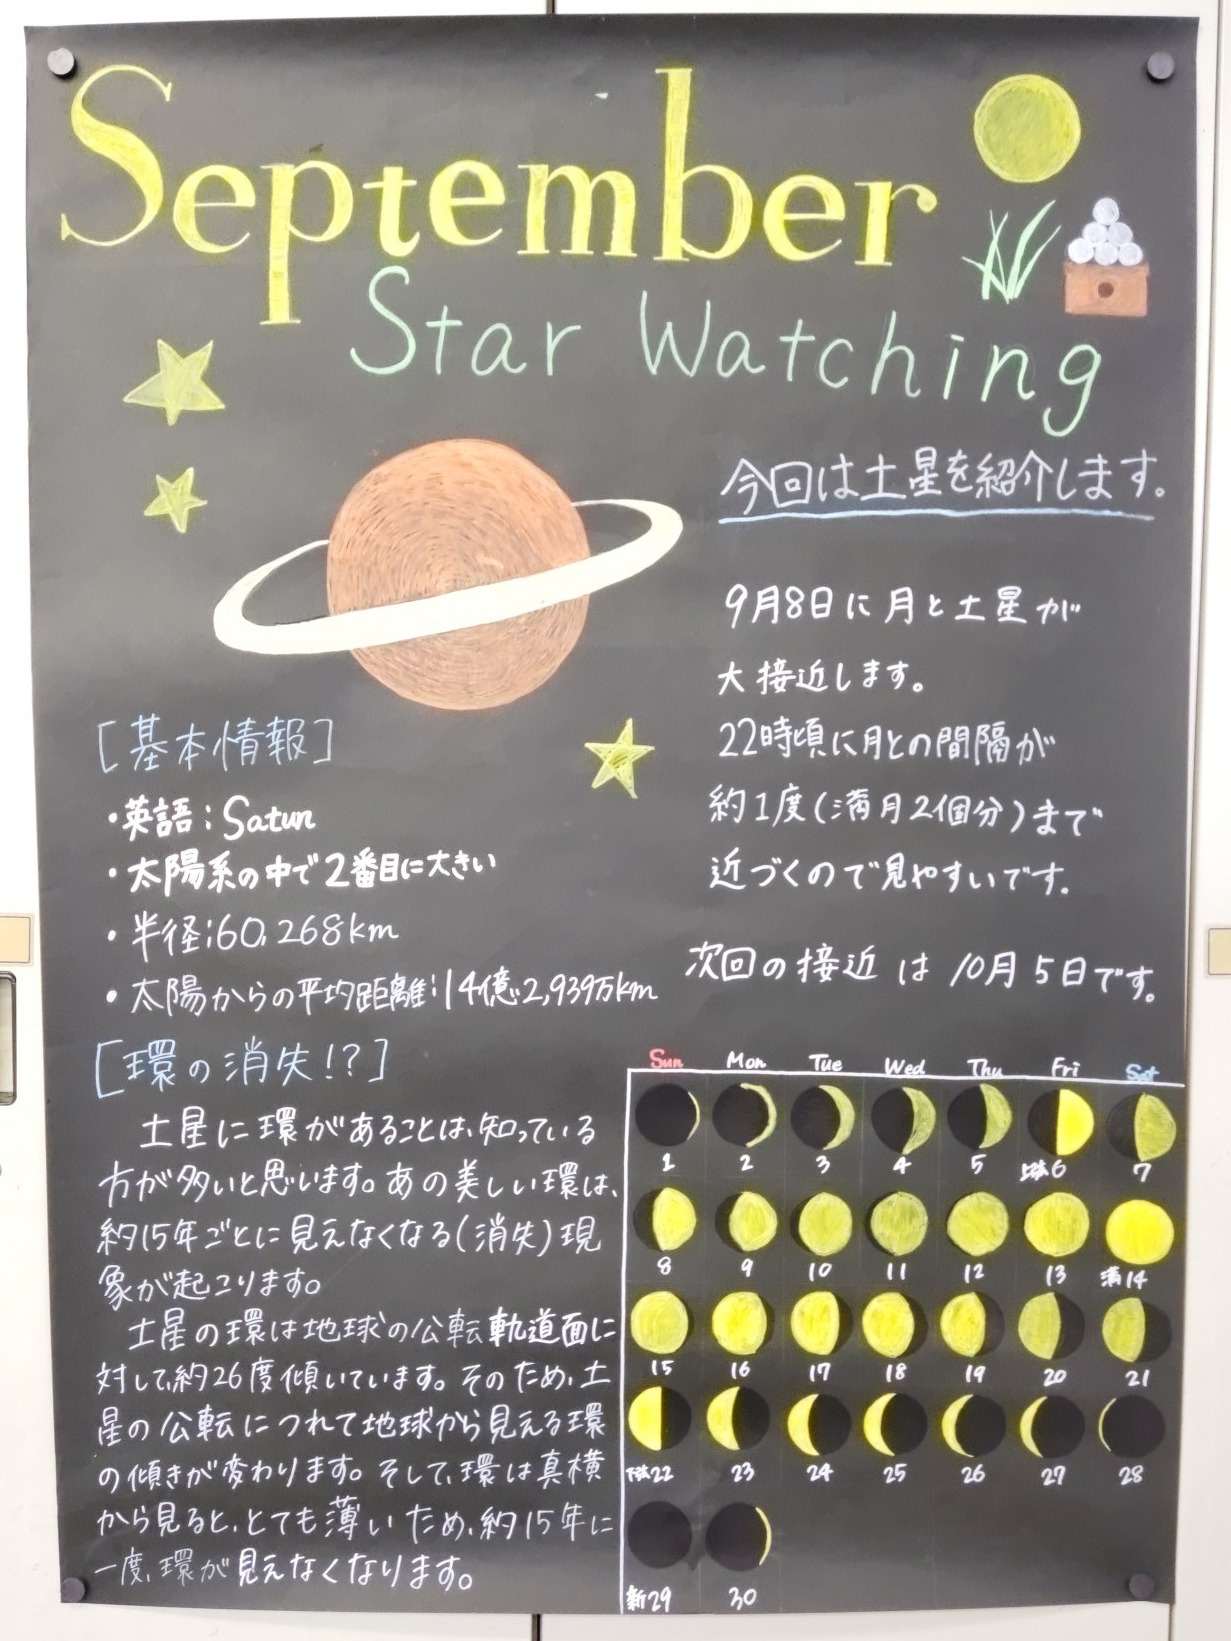 September
Star Watching
今回は土星を紹介します。
9月8日に月と土星が
大接近します。
22時頃に月との間隔が
約1度(満月2個分)まで
近づくので見やすいです。
次回の接近は10月5日です。
[基本情報]
・英語:Saturn
・太陽系の中で2番目に大きい
・半径:60,268km
・太陽からの平均距離:14億2,939万km
[環の消失!?]
土星に環があることは、知っている
方が多いと思います。あの美しい環は、
約15年ごとに見えなくなる(消失)現
象が起こります。
土星の環は地球の公転軌道面に
対して、約26度傾いています。そのため、土
星の公転につれて地球から見える環
の傾きが変わります。そして、環は真横
から見ると、とても薄いため、約15年に
一度、環が見えなくなります。
Sun Mon Tue Wed Thu Fri Sat
1 2 3 4 5 上弦6 7
8 9 10 11 12 13 満14
15 16 17 18 19 20 21
下弦22 23 24 25 26 27 28
新29 30